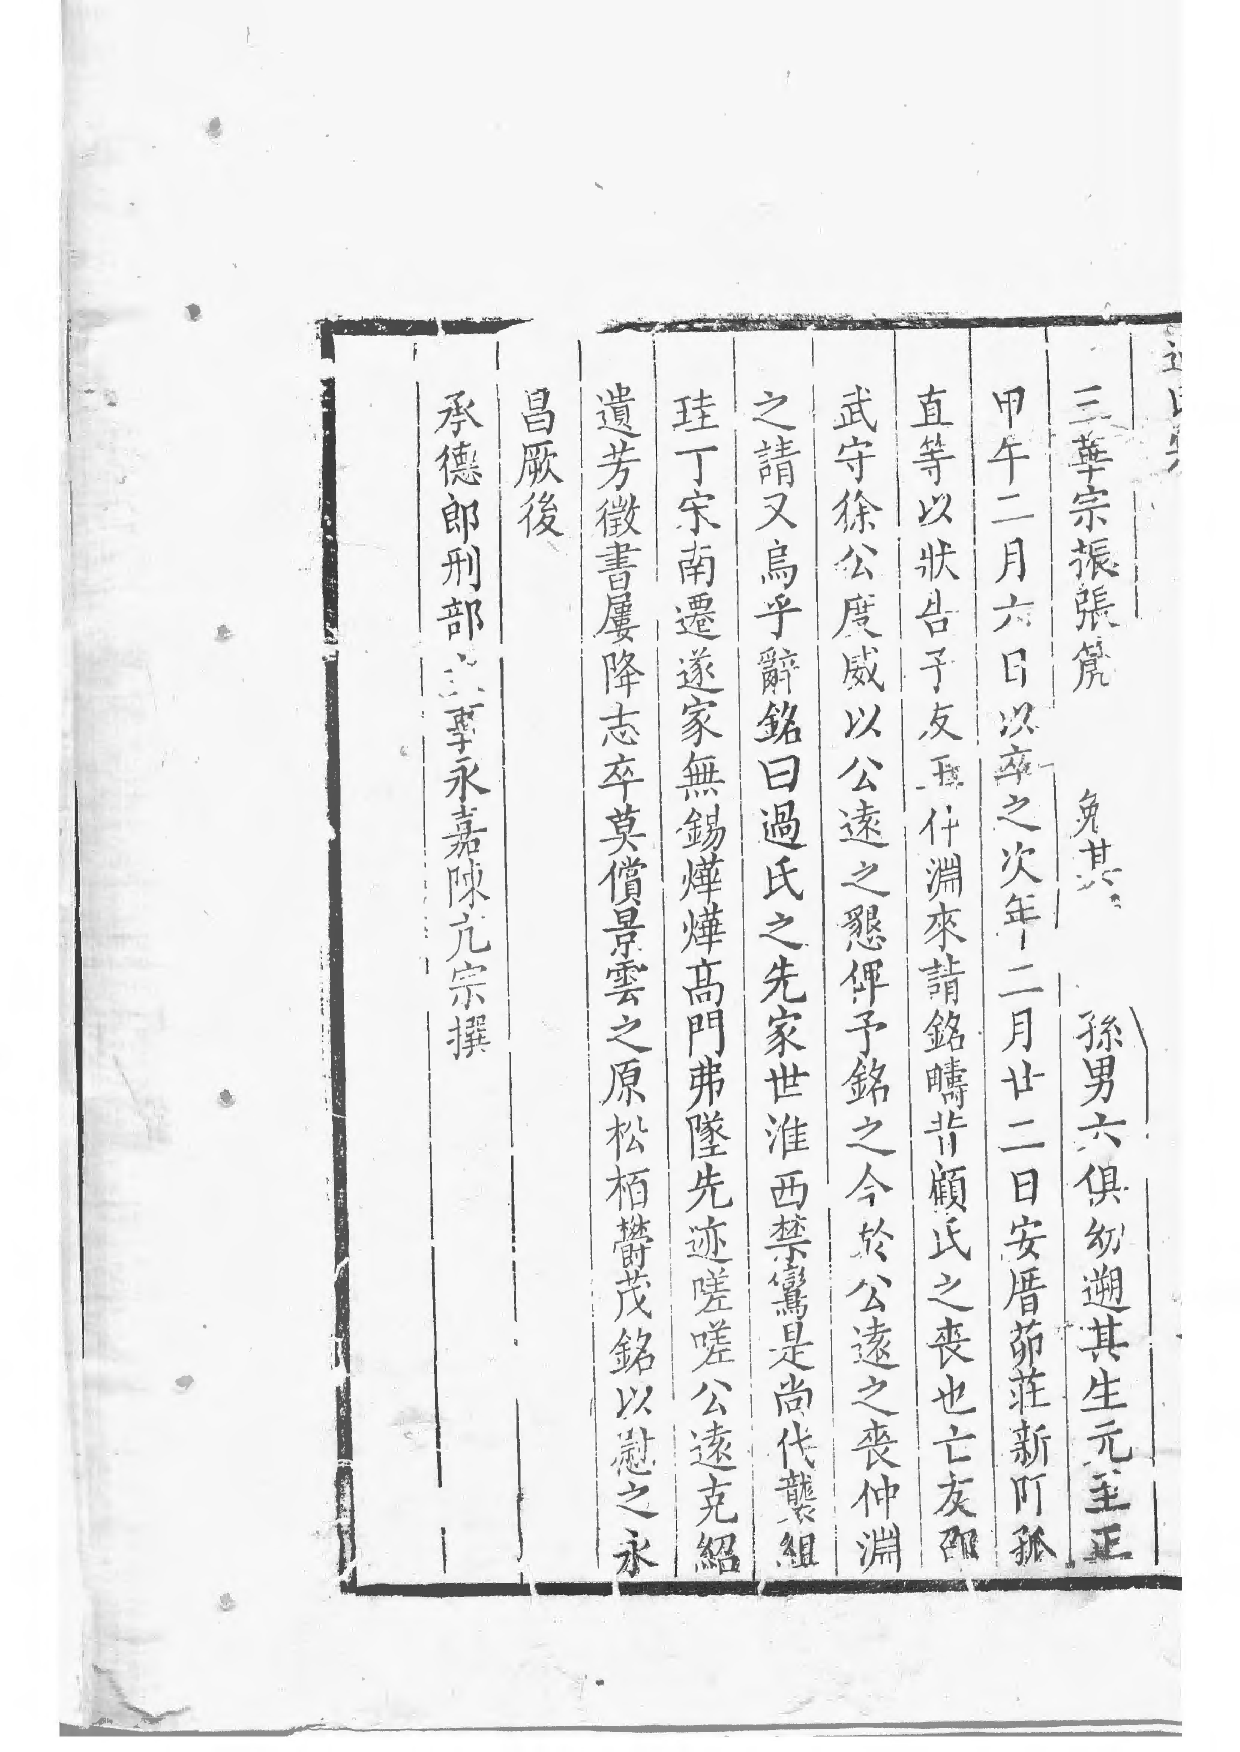 過氏
三華宗振張筦　兔其　孫男六俱幼遡其生元至正
甲午二月六日以卒之次年十二月廿二日安厝茆莊新阡孤
直等以狀告予友　仲淵來請銘疇昔顧氏之喪也亡友邵
武守徐公度威以公遠之懇俾予銘之今於公遠之喪仲淵
之請又烏乎辭銘曰過氏之先家世淮西禁臠是尚代襲組
珪丁宋南遷遂家無錫燁燁高門弗墜先迹嗟嗟公遠克紹
遺芳徵書屢降志卒莫償景雲之原松栢欝茂銘以慰之永
昌厥後
承德郎刑部主事永嘉陳亢宗撰